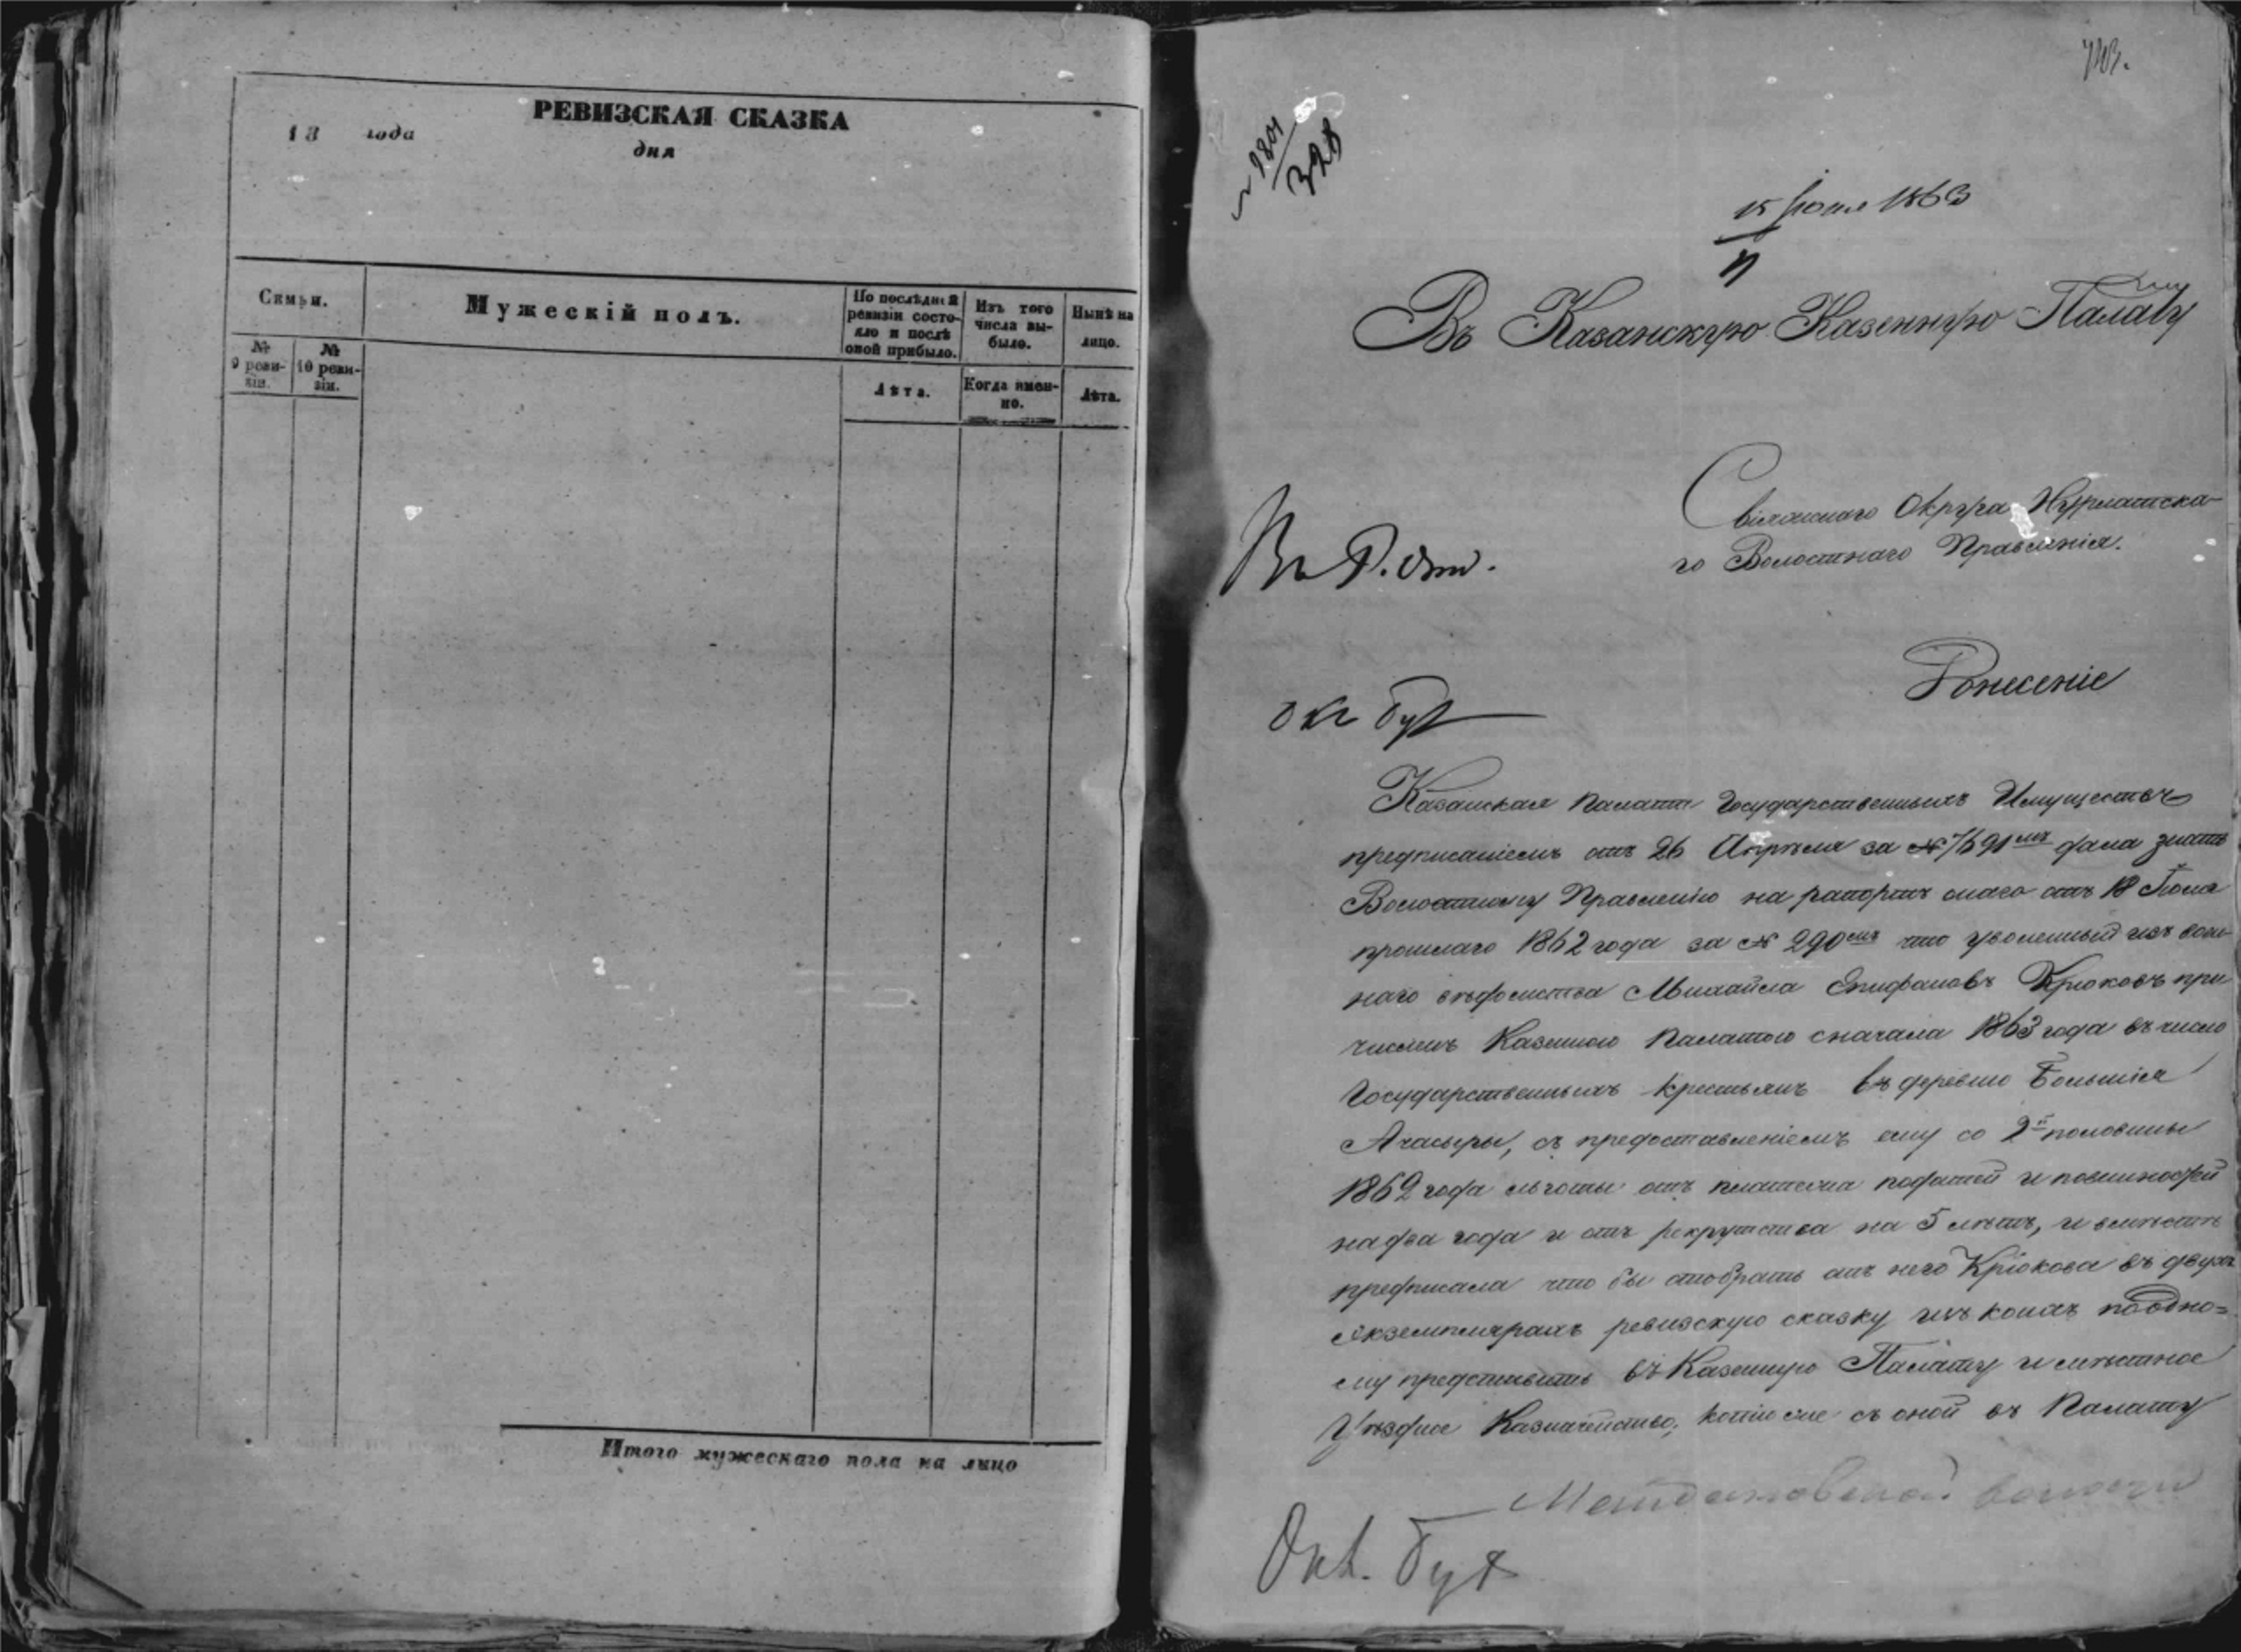 РЕВИЗСКАЯ СКАЗКА
18 года
дня
Симьи.
Мужескій полъ.
По послѣдней ревизіи состояло и послѣ оной прибыло.
Изъ того числа выбыло.
Нынѣ на лицо.
№ 9 ревизіи.
№ 10 ревизіи.
Лѣта.
Когда именно.
Лѣта.
Итого мужескаго пола на лицо
328
15 Іюня 1863
Въ Казанскую Казенную Палату
Свіяжскаго Округа Нурлатска-
го Волостнаго Правленія.
Донесеніе
Казанская Палата Государственныхъ Имуществъ
предписаніемъ отъ 26 Апрѣля за № 7691мъ дала знать
Волостному Правленію на рапортъ онаго отъ 18 Іюля
прошлаго 1862 года за № 290мъ что уволенный изъ воен-
наго вѣдомства Михайла Епифановъ Крюковъ при-
численъ Казенною Палатою сначала 1863 года въ число
Государственныхъ крестьянъ въ деревню Большія
Ачасыры, съ предоставленіемъ ему со 2й половины
1862 года льготы отъ платежа податей и повинностей
на два года и отъ рекрутства на 5 лѣтъ, и вмѣстѣ
предписала что бы отобрать отъ него Крюкова въ двухъ
экземплярахъ ревизскую сказку изъ коихъ по одно-
му представить въ Казенную Палату и мѣстное
Уѣздное Казначейство, копію же съ оной въ Палату